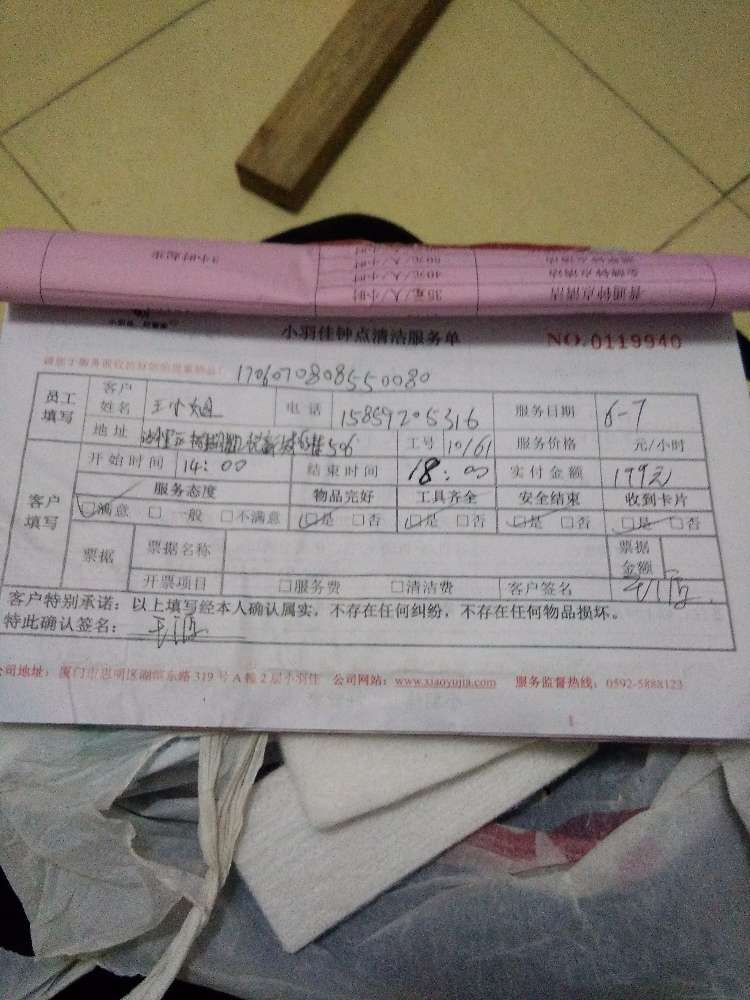 3小时起步
60元/人/小时
金牌钟点清洁 40元/人/小时
普通钟点清洁 35元/人/小时
小羽佳钟点清洁服务单 NO.0119940
1706070808550080
员工填写 客户姓名 王小姐 电话 15859205316 服务日期 6-7
地址 506 工号 10161 服务价格 元/小时
客户填写 开始时间 14:00 结束时间 18:00 实付金额 199元
服务态度 物品完好 工具齐全 安全结束 收到卡片
☑满意 □一般 □不满意 ☑是 □否 ☑是 □否 ☑是 □否 ☑是 □否
票据 票据名称 票据金额
开票项目 □服务费 □清洁费 客户签名
客户特别承诺:以上填写经本人确认属实,不存在任何纠纷,不存在任何物品损坏。
特此确认签名:
公司地址:厦门市思明区湖滨东路319号A幢2层小羽佳 公司网站:www.xiaoyujia.com 服务监督热线:0592-5888123
1